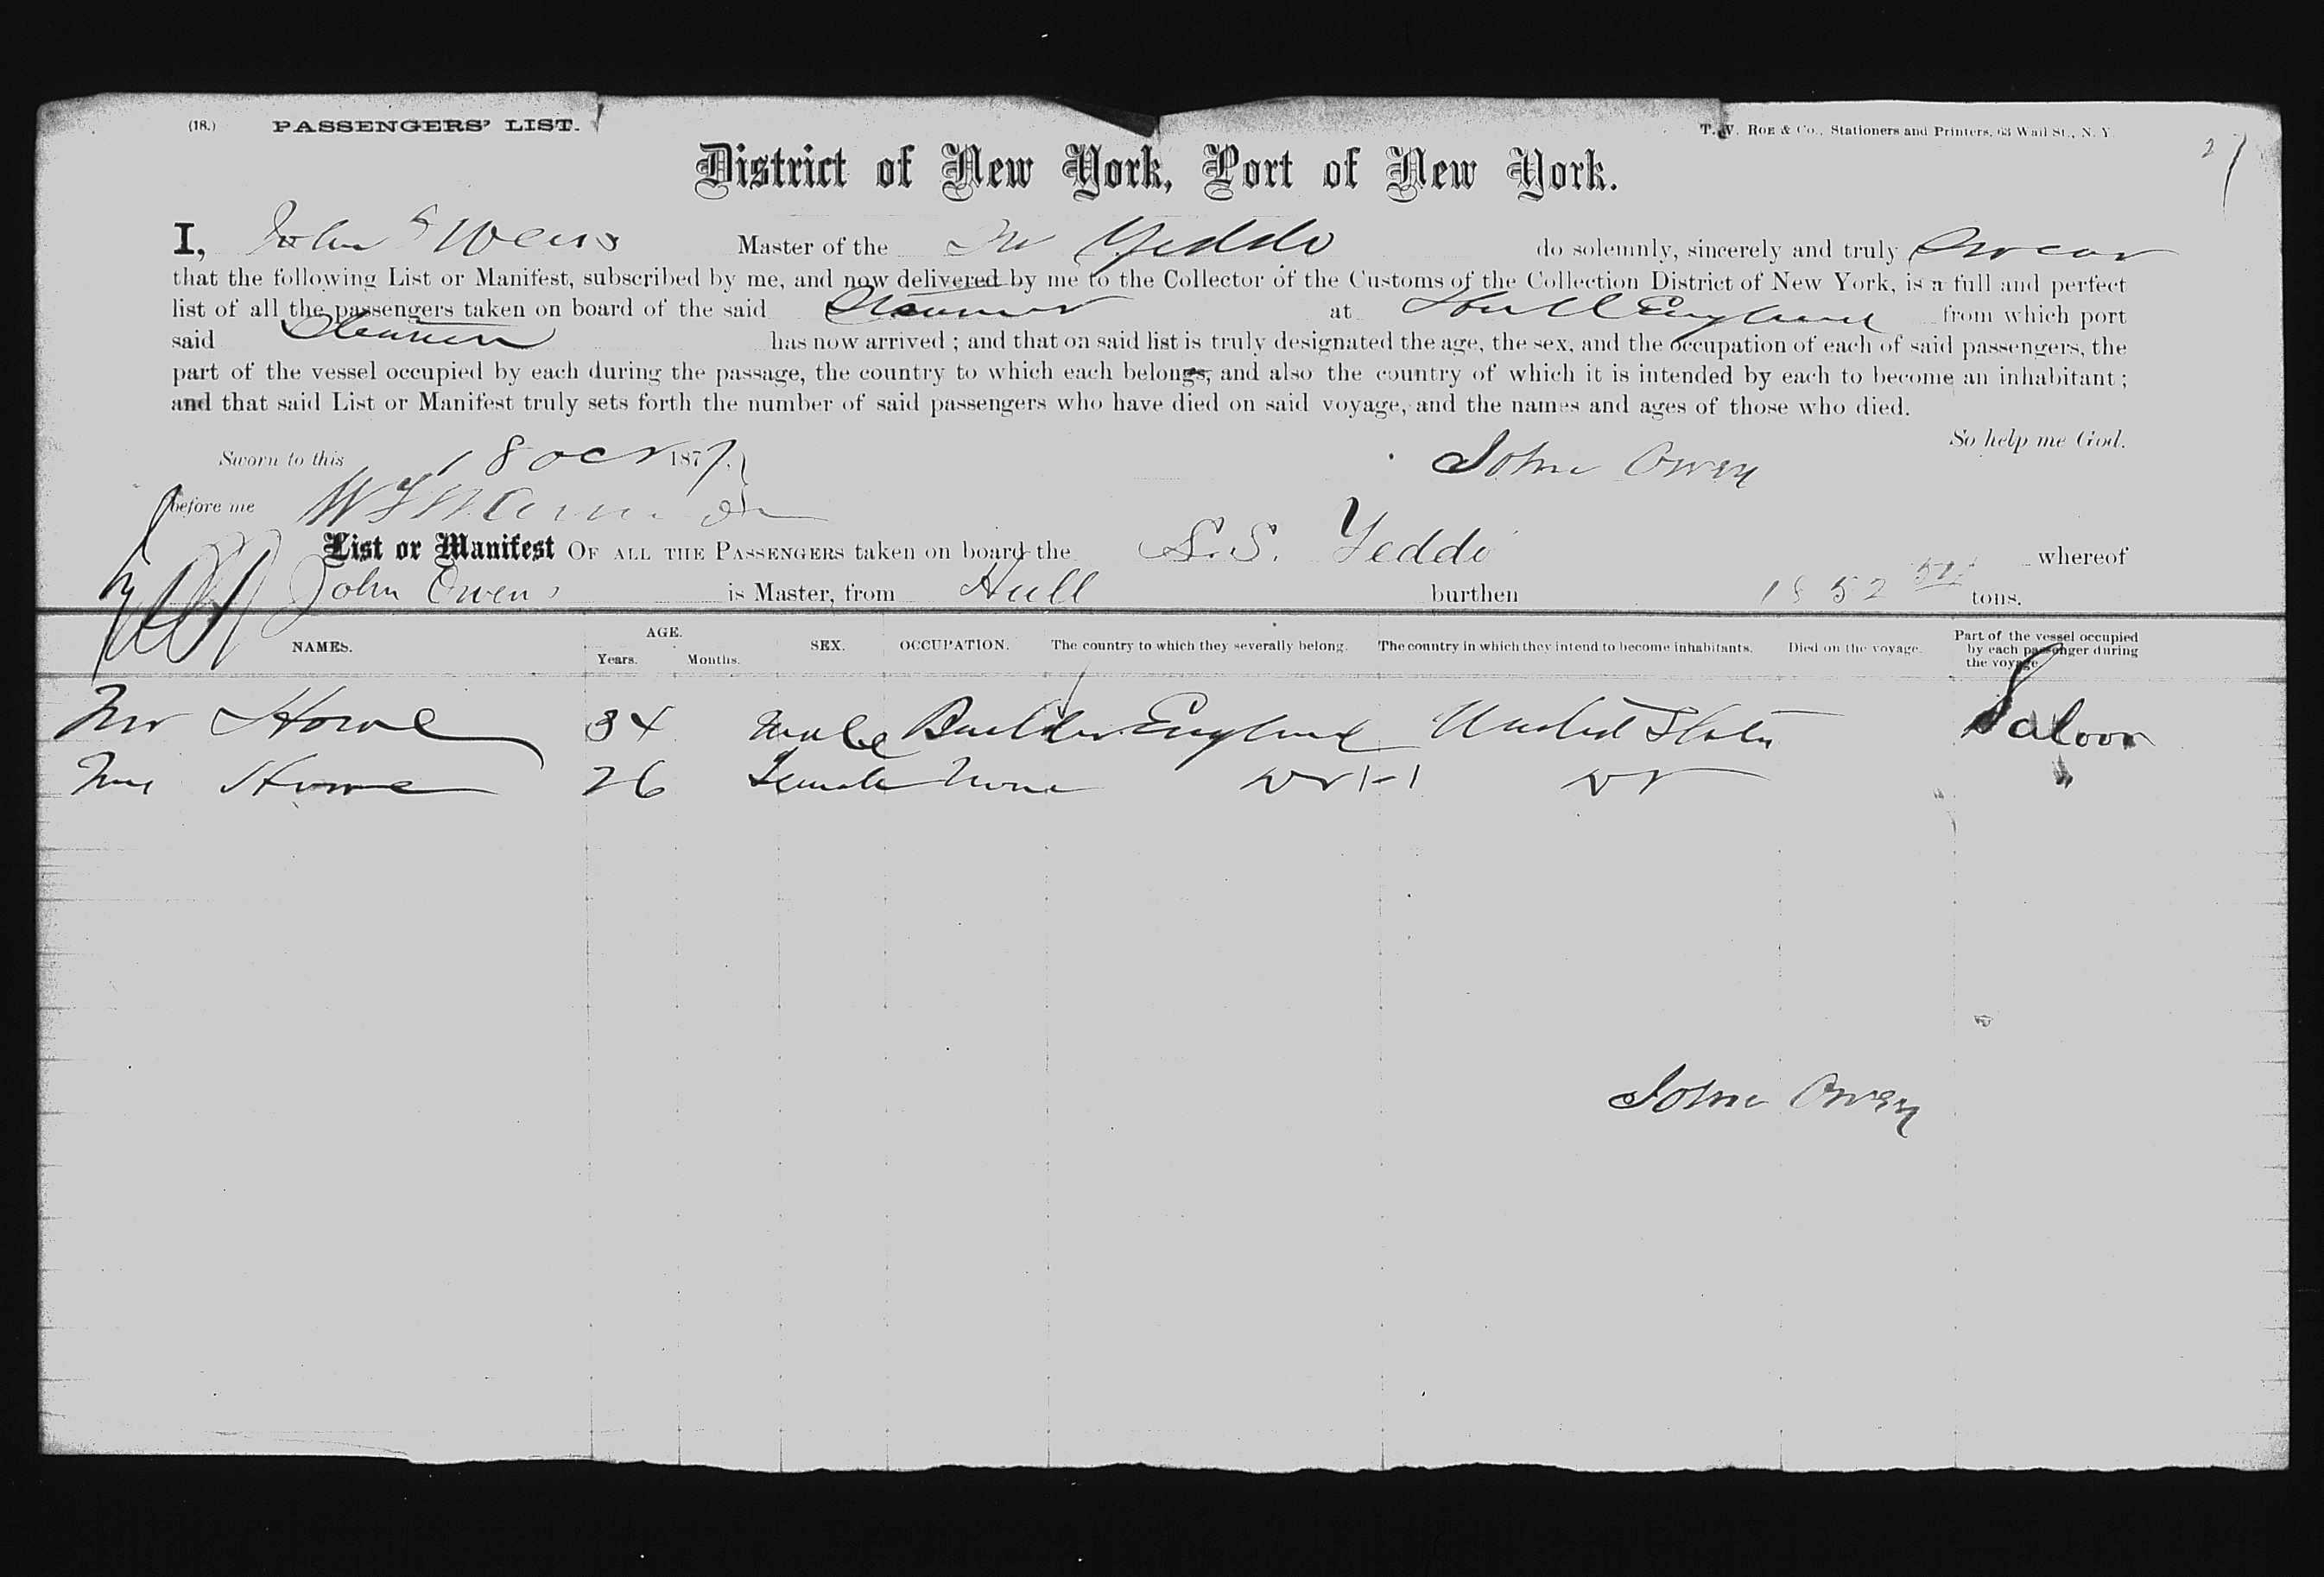 (18.) PASSENGERS' LIST. T. W. ROE & Co., Stationers and Printers, 63 Wall St., N. Y.
District of New York, Port of New York.
I, John Owens Master of the Yeddo do solemnly, sincerely and truly Swear
that the following List or Manifest, subscribed by me, and now delivered by me to the Collector of the Customs of the Collection District of New York, is a full and perfect
list of all the passengers taken on board of the said Steamer at Hull England from which port
said Steamer has now arrived ; and that on said list is truly designated the age, the sex, and the occupation of each of said passengers, the
part of the vessel occupied by each during the passage, the country to which each belongs, and also the country of which it is intended by each to become an inhabitant ;
and that said List or Manifest truly sets forth the number of said passengers who have died on said voyage, and the names and ages of those who died.
So help me God.
Sworn to this 18 Oct 187 John Owen
before me
List or Manifest OF ALL THE PASSENGERS taken on board the S.S. Yeddo whereof
John Owens is Master, from Hull burthen 1852 tons.
NAMES. AGE. Years. Months. SEX. OCCUPATION. The country to which they severally belong. The country in which they intend to become inhabitants. Died on the voyage. Part of the vessel occupied by each passenger during the voyage
Mr Howe 34 Male Builder England United States Saloon
Mrs Howe 26 Female None "
John Owen